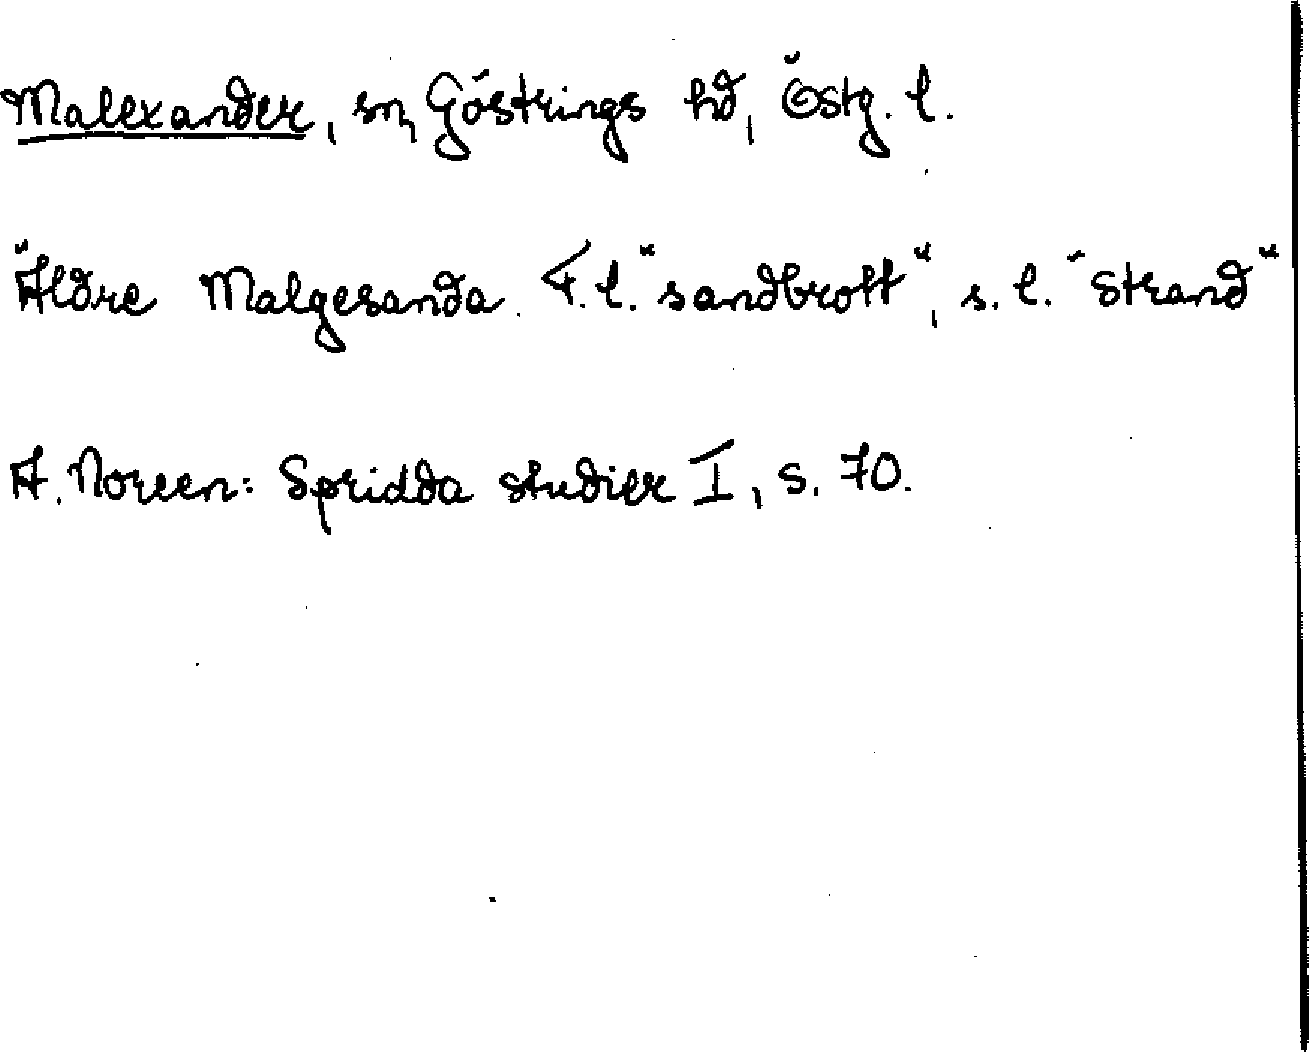 Malexander, sn, Göstrings hd, Östg. l.
Äldre Malgesanda. F.l. "sandbrott", s.l. "strand"
A. Noreen: Spridda studier I, s. 70.